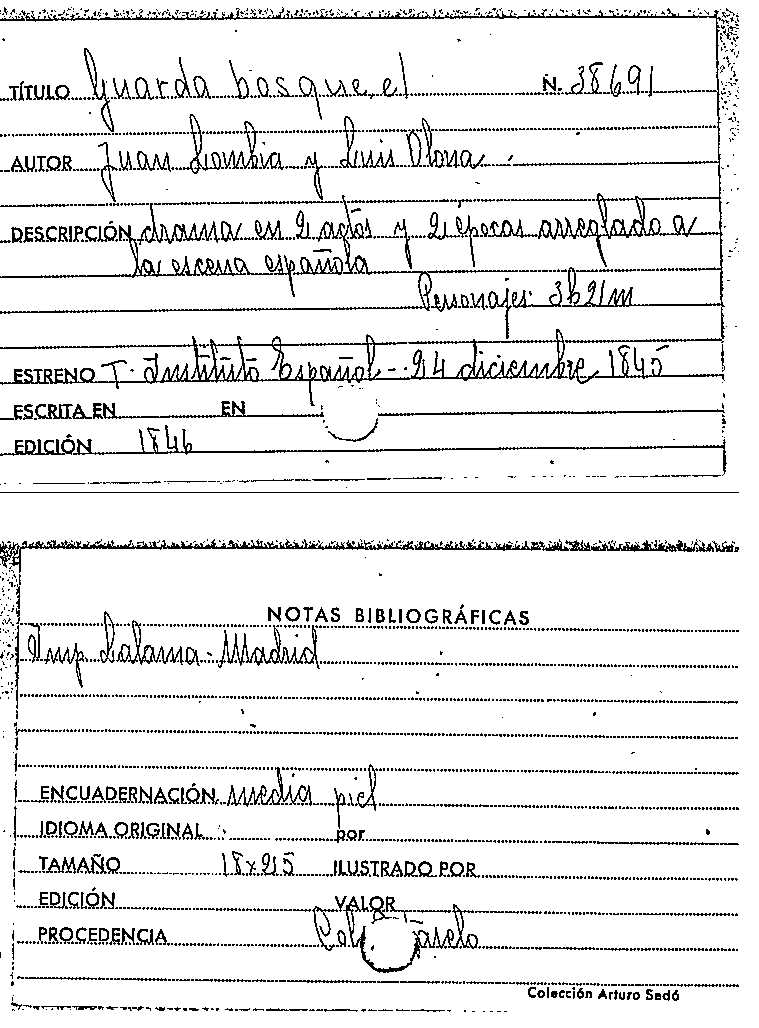 TÍTULO Guarda bosque, el N. 38691
AUTOR Juan Lombia y Luis Olona.
DESCRIPCIÓN drama en 2 actos y 2 épocas arreglado a
la escena española
Personajes: 3h21m
ESTRENO T. Instituto Español - 24 diciembre 1845
ESCRITA EN EN
EDICIÓN 1846
NOTAS BIBLIOGRÁFICAS
Imp Lalama - Madrid
ENCUADERNACIÓN media piel
IDIOMA ORIGINAL por
TAMAÑO 18x25 ILUSTRADO POR
EDICIÓN VALOR
PROCEDENCIA
Colección Arturo Sedó